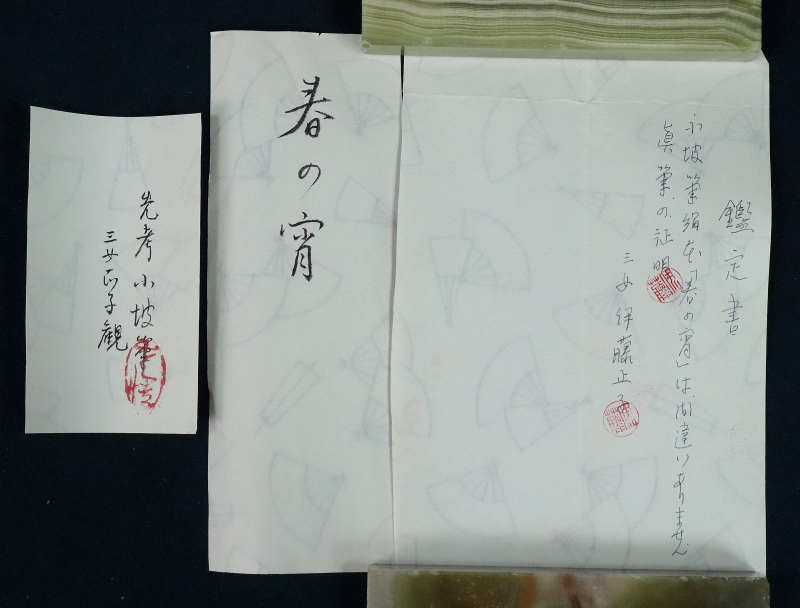 鑑定書
小坡筆絹本「春の宵」は間違いありません
真筆の証明
三女 伊藤正子
春の宵
先考小坡筆
三女正子観